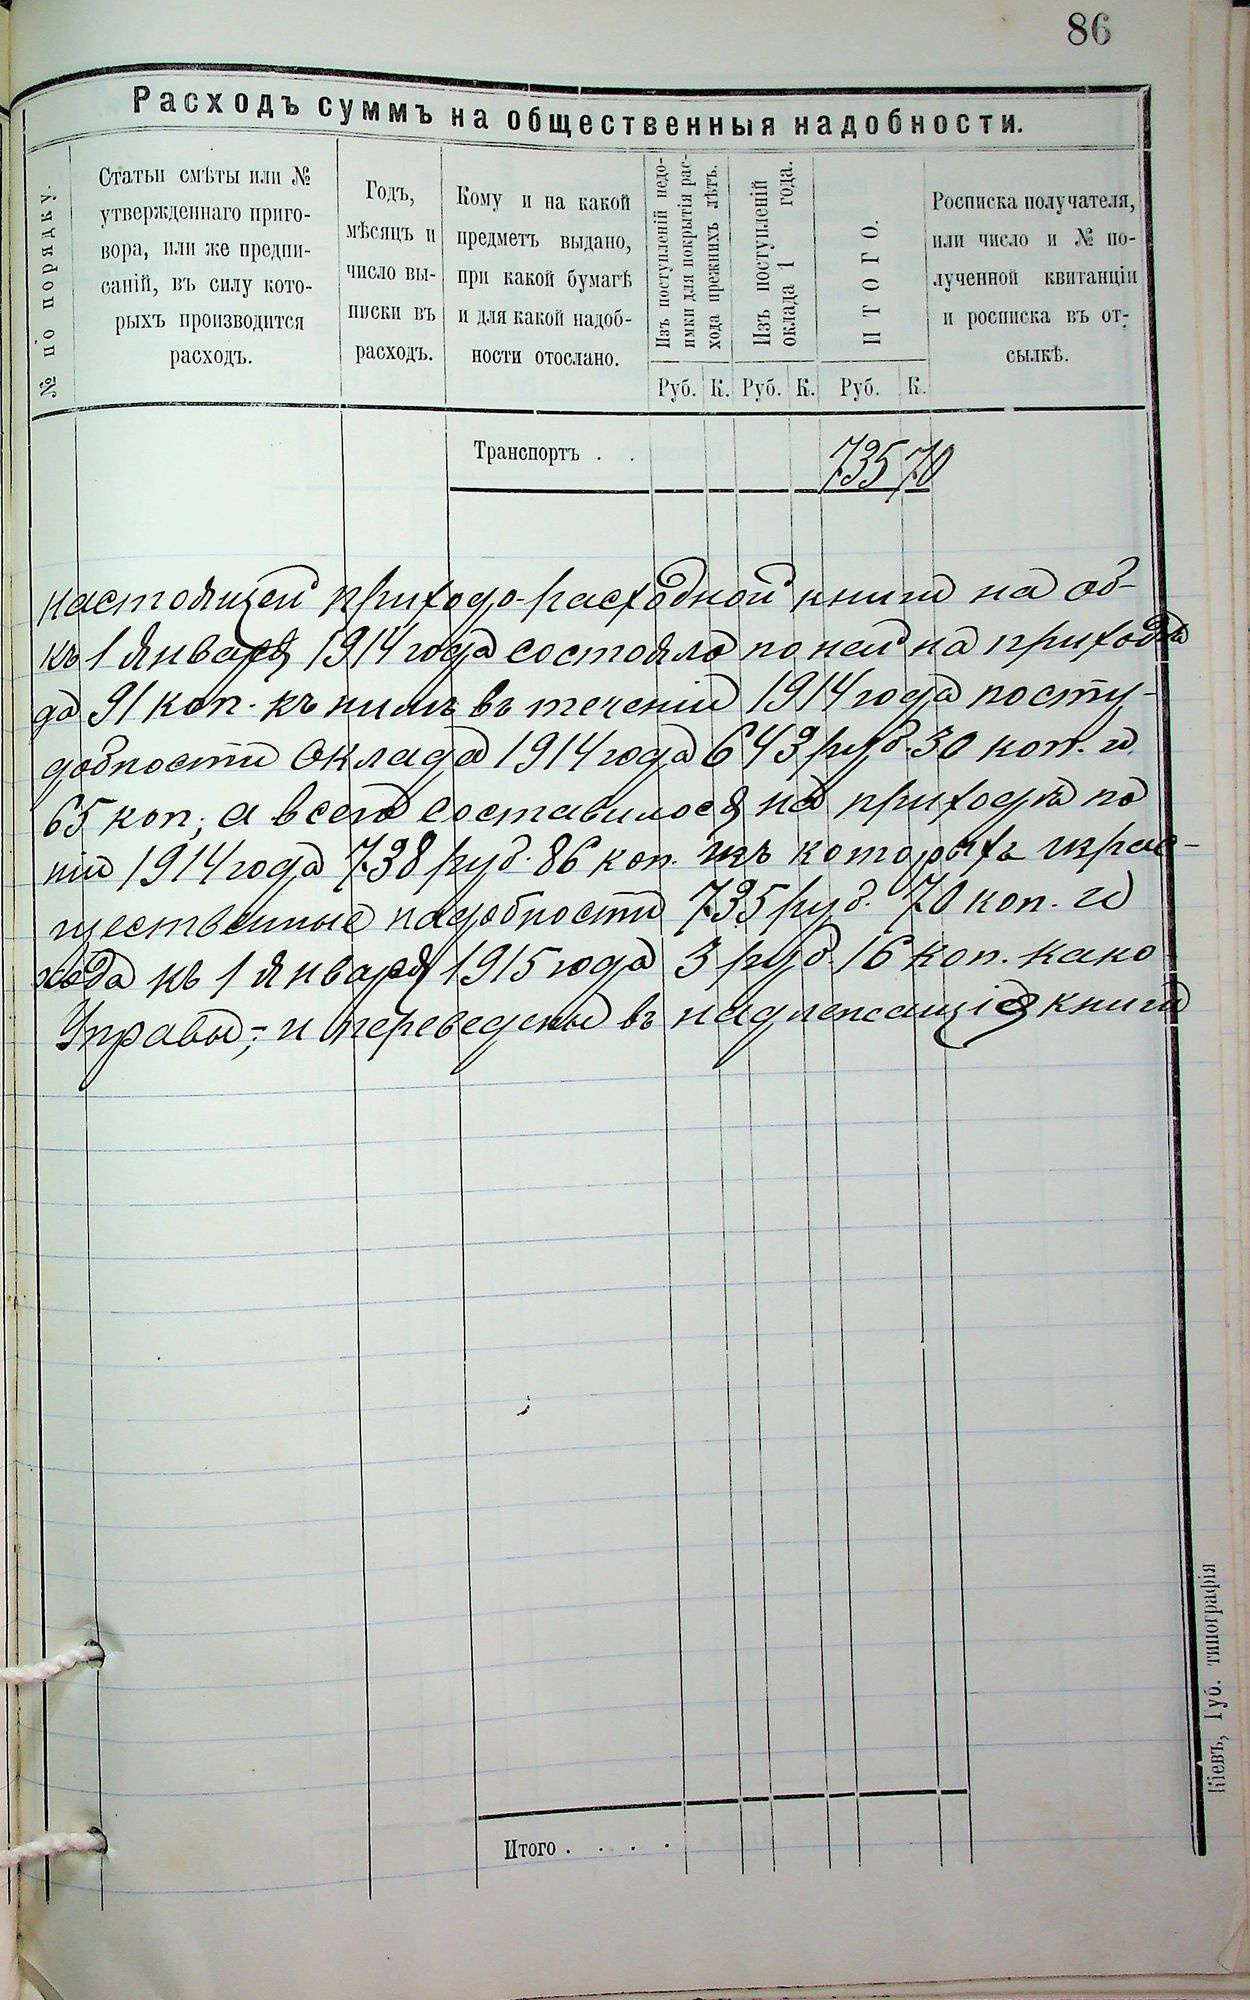 86
Расходъ суммъ на общественныя надобности.
№ по порядку.
Статьи смѣты или №
утвержденнаго приго-
вора, или же предпи-
саній, въ силу кото-
рыхъ производится
расходъ.
Годъ,
мѣсяцъ и
число вы-
писки въ
расходъ.
Кому и на какой
предметъ выдано,
при какой бумагѣ
и для какой надоб-
ности отослано.
Изъ поступленій недо-
имки для покрытія рас-
хода прежнихъ лѣтъ.
Изъ поступленій
оклада 1 года.
ИТОГО.
Росписка получателя,
или число и № по-
лученной квитанціи
и росписка въ от-
сылкѣ.
Руб. К. Руб. К. Руб. К.
Транспортъ . . 735 70
настоящей приходо-расходной книги на об-
къ 1 января 1914 года состояло по ней на приходѣ
да 91 коп. къ нимъ въ теченіи 1914 года посту-
добности оклада 1914 года 643 руб. 30 коп. и
65 коп; а всего составилося на приходѣ по
ніи 1914 года 738 руб. 86 коп. изъ которыхъ израс-
щественные надобности 735 руб. 70 коп. и
хода къ 1 января 1915 года 3 руб. 16 коп. како
Управы; и переведены въ надлежащія книги
Итого . . . .
Кіевъ, Губ. типографія